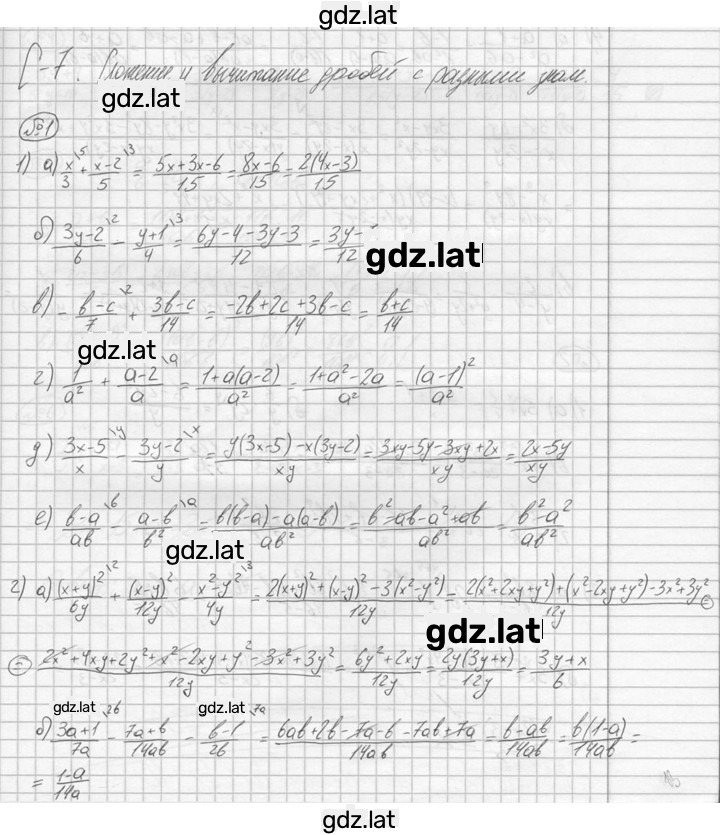 gdz.lat
С-7. Сложение и вычитание дробей с разными знам.
gdz.lat
№1
1) а) x/3 \5 + (x-2)/5 \3 = (5x+3x-6)/15 = (8x-6)/15 = 2(4x-3)/15
б) (3y-2)/6 \2 - (y+1)/4 \3 = (6y-4-3y-3)/12 = (3y-)/12 gdz.lat
в) - (b-c)/7 \2 + (3b-c)/14 = (-2b+2c+3b-c)/14 = (b+c)/14
gdz.lat
г) 1/a² + (a-2)/a \a = (1+a(a-2))/a² = (1+a²-2a)/a² = (a-1)²/a²
gdz.lat
д) (3x-5)/x \y - (3y-2)/y \x = (y(3x-5)-x(3y-2))/xy = (3xy-5y-3xy+2x)/xy = (2x-5y)/xy
е) (b-a)/ab \b - (a-b)/b² \a = (b(b-a)-a(a-b))/ab² = (b²-ab-a²+ab)/ab² = (b²-a²)/ab²
gdz.lat
2) а) (x+y)²/6y \2 + (x-y)²/12y - (x²-y²)/4y \3 = (2(x+y)²+(x-y)²-3(x²-y²))/12y = (2(x²+2xy+y²)+(x²-2xy+y²)-3x²+3y²)/12y =
gdz.lat
= (2x²+4xy+2y²+x²-2xy+y²-3x²+3y²)/12y = (6y²+2xy)/12y = 2y(3y+x)/12y = (3y+x)/6
gdz.lat gdz.lat
б) (3a+1)/7a \2b - (7a+b)/14ab - (b-1)/2b \7a = (6ab+2b-7a-b-7ab+7a)/14ab = (b-ab)/14ab = b(1-a)/14ab =
= (1-a)/14a
gdz.lat